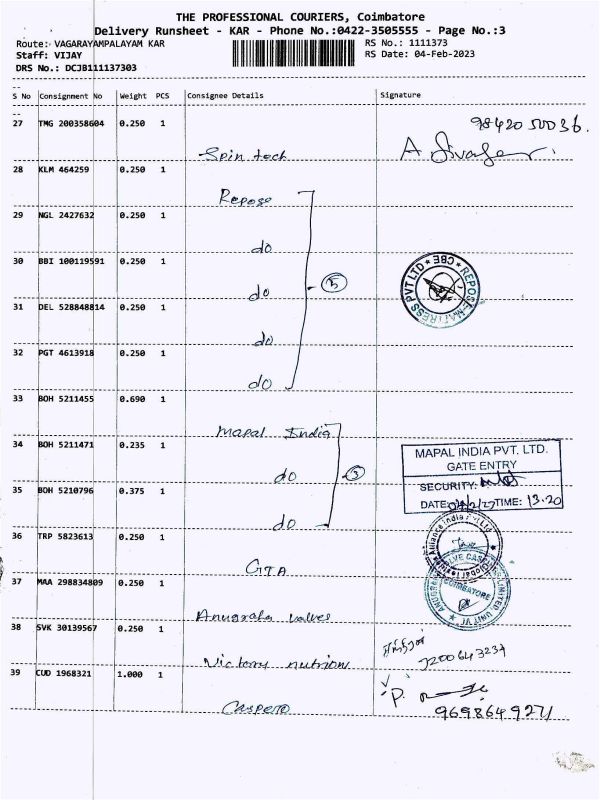 THE PROFESSIONAL COURIERS, Coimbatore
Delivery Runsheet - KAR - Phone No.:0422-3505555 - Page No.:3
Route: VAGARAYAMPALAYAM KAR
RS No.: 1111373
Staff: VIJAY
RS Date: 04-Feb-2023
DRS No.: DCJB111137303
S No Consignment No Weight PCS Consignee Details Signature
27 TMG 200358604 0.250 1
98420 50036.
Spin tech
28 KLM 464259 0.250 1
Repose
29 NGL 2427632 0.250 1
do
30 BBI 100119591 0.250 1
do
5
REPOSE MATTRESS PVT LTD * CBE *
31 DEL 528848814 0.250 1
do
32 PGT 4613918 0.250 1
do
33 BOH 5211455 0.690 1
Mapal India
34 BOH 5211471 0.235 1
do
3
MAPAL INDIA PVT. LTD.
GATE ENTRY
SECURITY:
35 BOH 5210796 0.375 1
DATE: TIME: 13.20
do
36 TRP 5823613 0.250 1
GTA
37 MAA 298834809 0.250 1
COIMBATORE
Anugraha valves
38 SVK 30139567 0.250 1
Victory nutrion
7200643237
39 CUD 1968321 1.000 1
P.
Caspero
9698649271